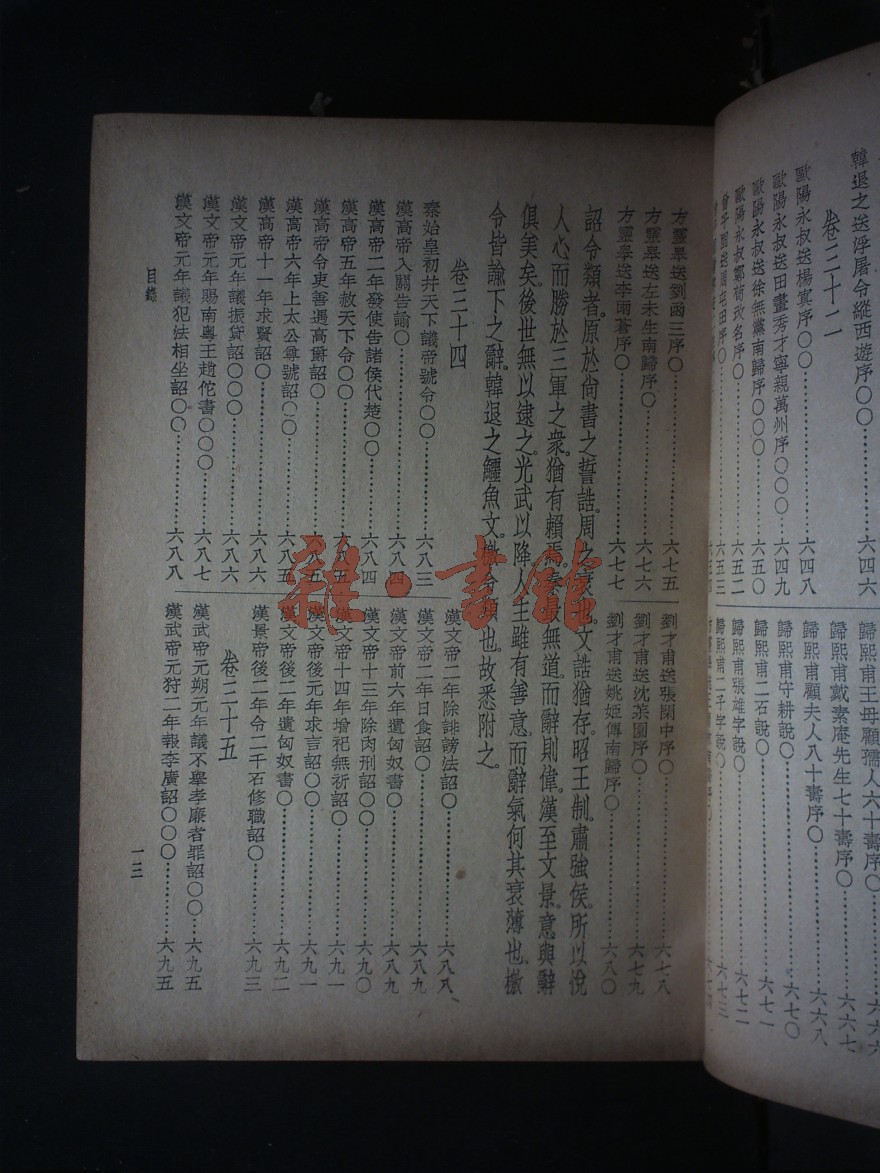 韓退之送浮屠令縱西遊序〇〇……六四六
卷三十二
歐陽永叔送楊寘序〇〇……六四八
歐陽永叔送田畫秀才寧親萬州序〇〇〇……六四九
歐陽永叔送徐無黨南歸序〇〇〇……六五〇
歐陽永叔鄭荀改名序〇……六五二
歸熙甫王母顧孺人六十壽序〇……六六六
歸熙甫戴素庵先生七十壽序〇……六六七
歸熙甫顧夫人八十壽序〇……六六八
歸熙甫守耕說〇……六七〇
歸熙甫二石說〇……六七一
歸熙甫張雄字說〇……六七二
歸熙甫二子字說〇……六七三
方靈皋送劉函三序〇……六七五
方靈皋送左未生南歸序〇……六七六
方靈皋送李雨蒼序〇……六七七
劉才甫送張閑中序〇……六七八
劉才甫送沈茮園序〇……六七九
劉才甫送姚姬傳南歸序〇……六八〇
詔令類者。原於尙書之誓誥。周之衰也。文誥猶存。昭王制。肅強侯。所以悅
人心而勝於三軍之衆。猶有賴焉。秦最無道。而辭則偉。漢至文景。意與辭
俱美矣。後世無以逮之。光武以降。人主雖有善意。而辭氣何其衰薄也。檄
令皆諭下之辭。韓退之鱷魚文。檄令類也。故悉附之。
卷三十四
秦始皇初幷天下議帝號令〇〇……六八三
漢高帝入關告諭〇……六八四
漢高帝二年發使告諸侯伐楚〇〇……六八四
漢高帝五年赦天下令〇〇……六八五
漢高帝令吏善遇高爵詔〇……六八五
漢高帝六年上太公尊號詔〇〇……六八五
漢高帝十一年求賢詔〇〇……六八六
漢文帝元年議振貸詔〇〇〇……六八六
漢文帝元年賜南粵王趙佗書〇〇〇……六八七
漢文帝元年議犯法相坐詔〇〇……六八八
漢文帝二年除誹謗法詔〇……六八八
漢文帝二年日食詔〇……六八九
漢文帝前六年遺匈奴書〇……六八九
漢文帝十三年除肉刑詔〇〇……六九〇
漢文帝十四年增祀無祈詔〇……六九一
漢文帝後元年求言詔〇〇……六九一
漢文帝後二年遺匈奴書〇……六九二
漢景帝後二年令二千石修職詔〇……六九三
卷三十五
漢武帝元朔元年議不舉孝廉者罪詔〇〇……六九五
漢武帝元狩二年報李廣詔〇〇〇……六九五
目錄
一三
雜·書館